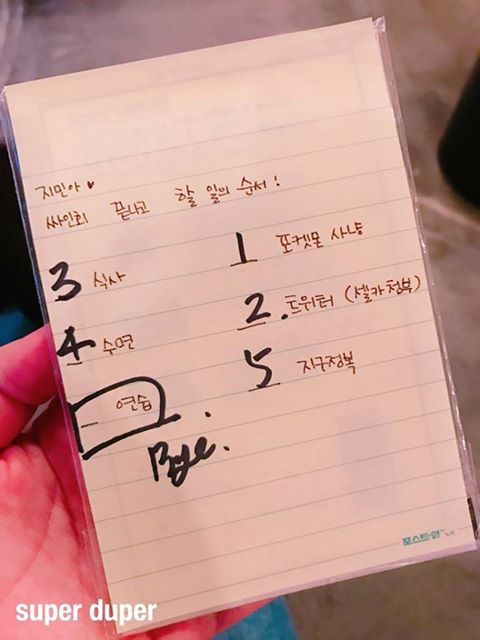 지민아 ♥
싸인회 끝나고 할 일의 순서!
3 식사
1 포켓몬 사냥
4 수면
2. 트위터 (셀카첨부)
연습
5 지구정복
Bye.
포스트-잇
super duper